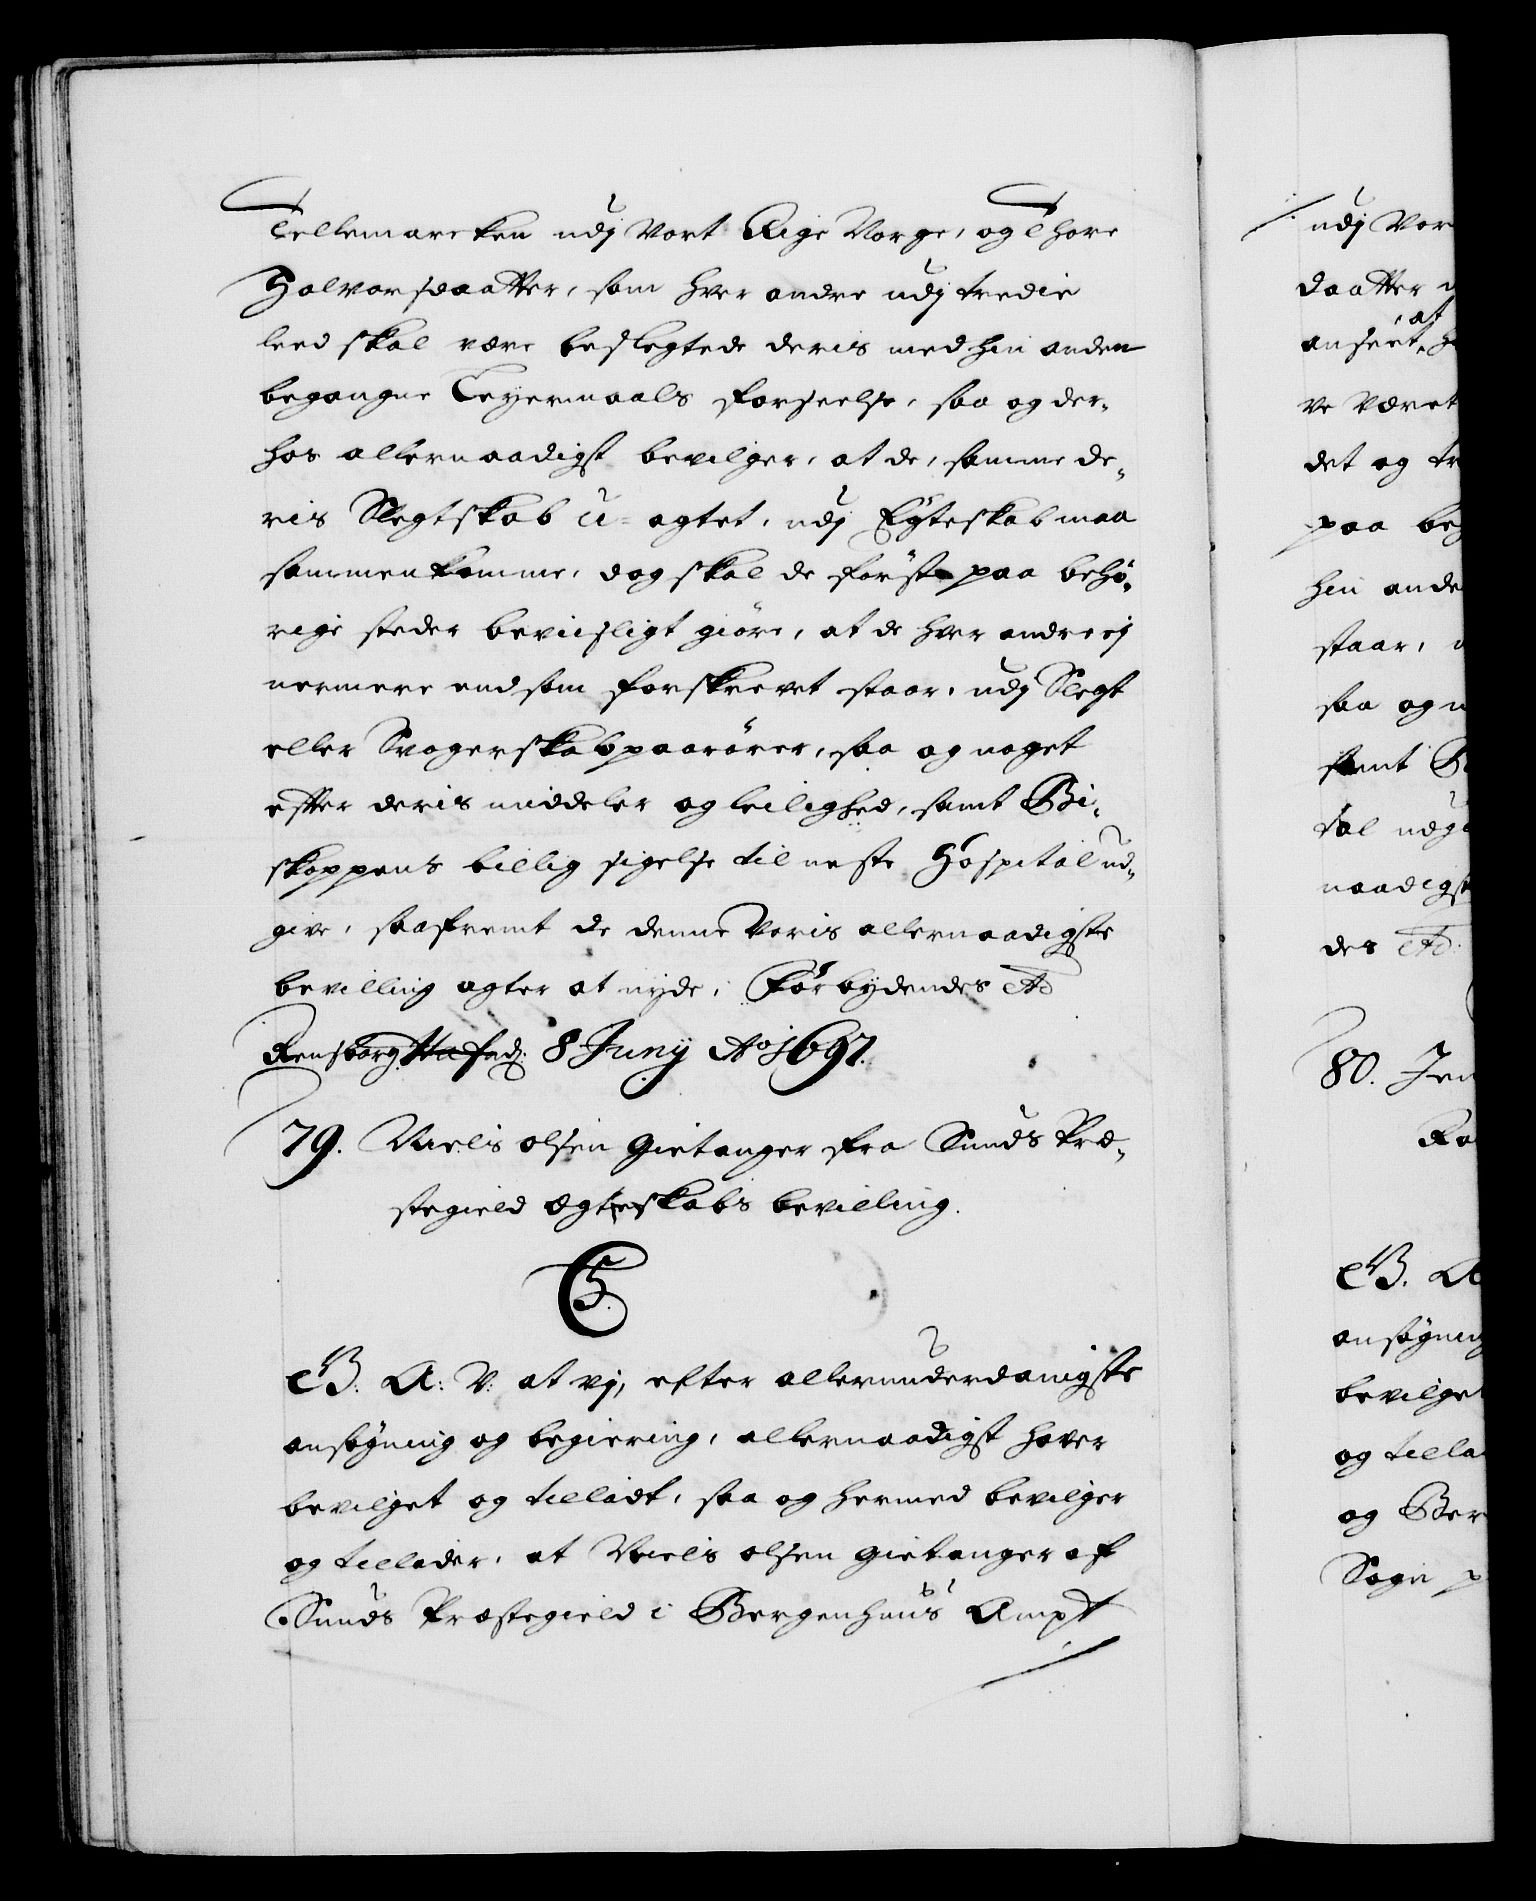 Tellemarcken udj Vort Rige Norge, og Thore
Halvorsdaatter, som hver andre udj tredie
leed skal være beslegtede deris med hin anden
begangne Leyermaals forseelse, saa og der-
hos allernaadigst bevilger, at de, samme de-
ris Slegtskab u-agtet, udj Egteskab maa
sammenkomme, dog skal de først paa behö-
rige steder bevisligt giöre, at de hver andre ej
nermere end som forskrevet staar, udj Slegt
eller Svogerskab paarörer, saa og noget
efter deris middeler og leilighed, samt Bi-
skoppens billig sigelse til neste Hospital ud-
give, saafremt de denne Voris allernaadigste
bevilling agter at nyde, Forbydendes etc
Rensborg Hafnj: 8 Junij Ao 1697.
79. Niels olsen Gietanger fra Sunds Præ-
stegield ægteskabs bevilling.
C5.
G B. A: V: at vj, efter allerunderdanigste
ansögning og begiering, allernaadigst hafver
bevilget og tilladt, saa og hermed bevilger
og tillader, at Niels olsen gietanger af
Sunds Præstegield i Bergenhuus Ampt
udj Vor
daatter
at
anseet, h
ve været
det og tr
paa beg
hin ande
staar,
saa og n
samt B
tal udgi
naadigst
des etc.
80. Jen
Ra
B. A
ansögning
bevilget
og tilla
og Ber
Sogn p